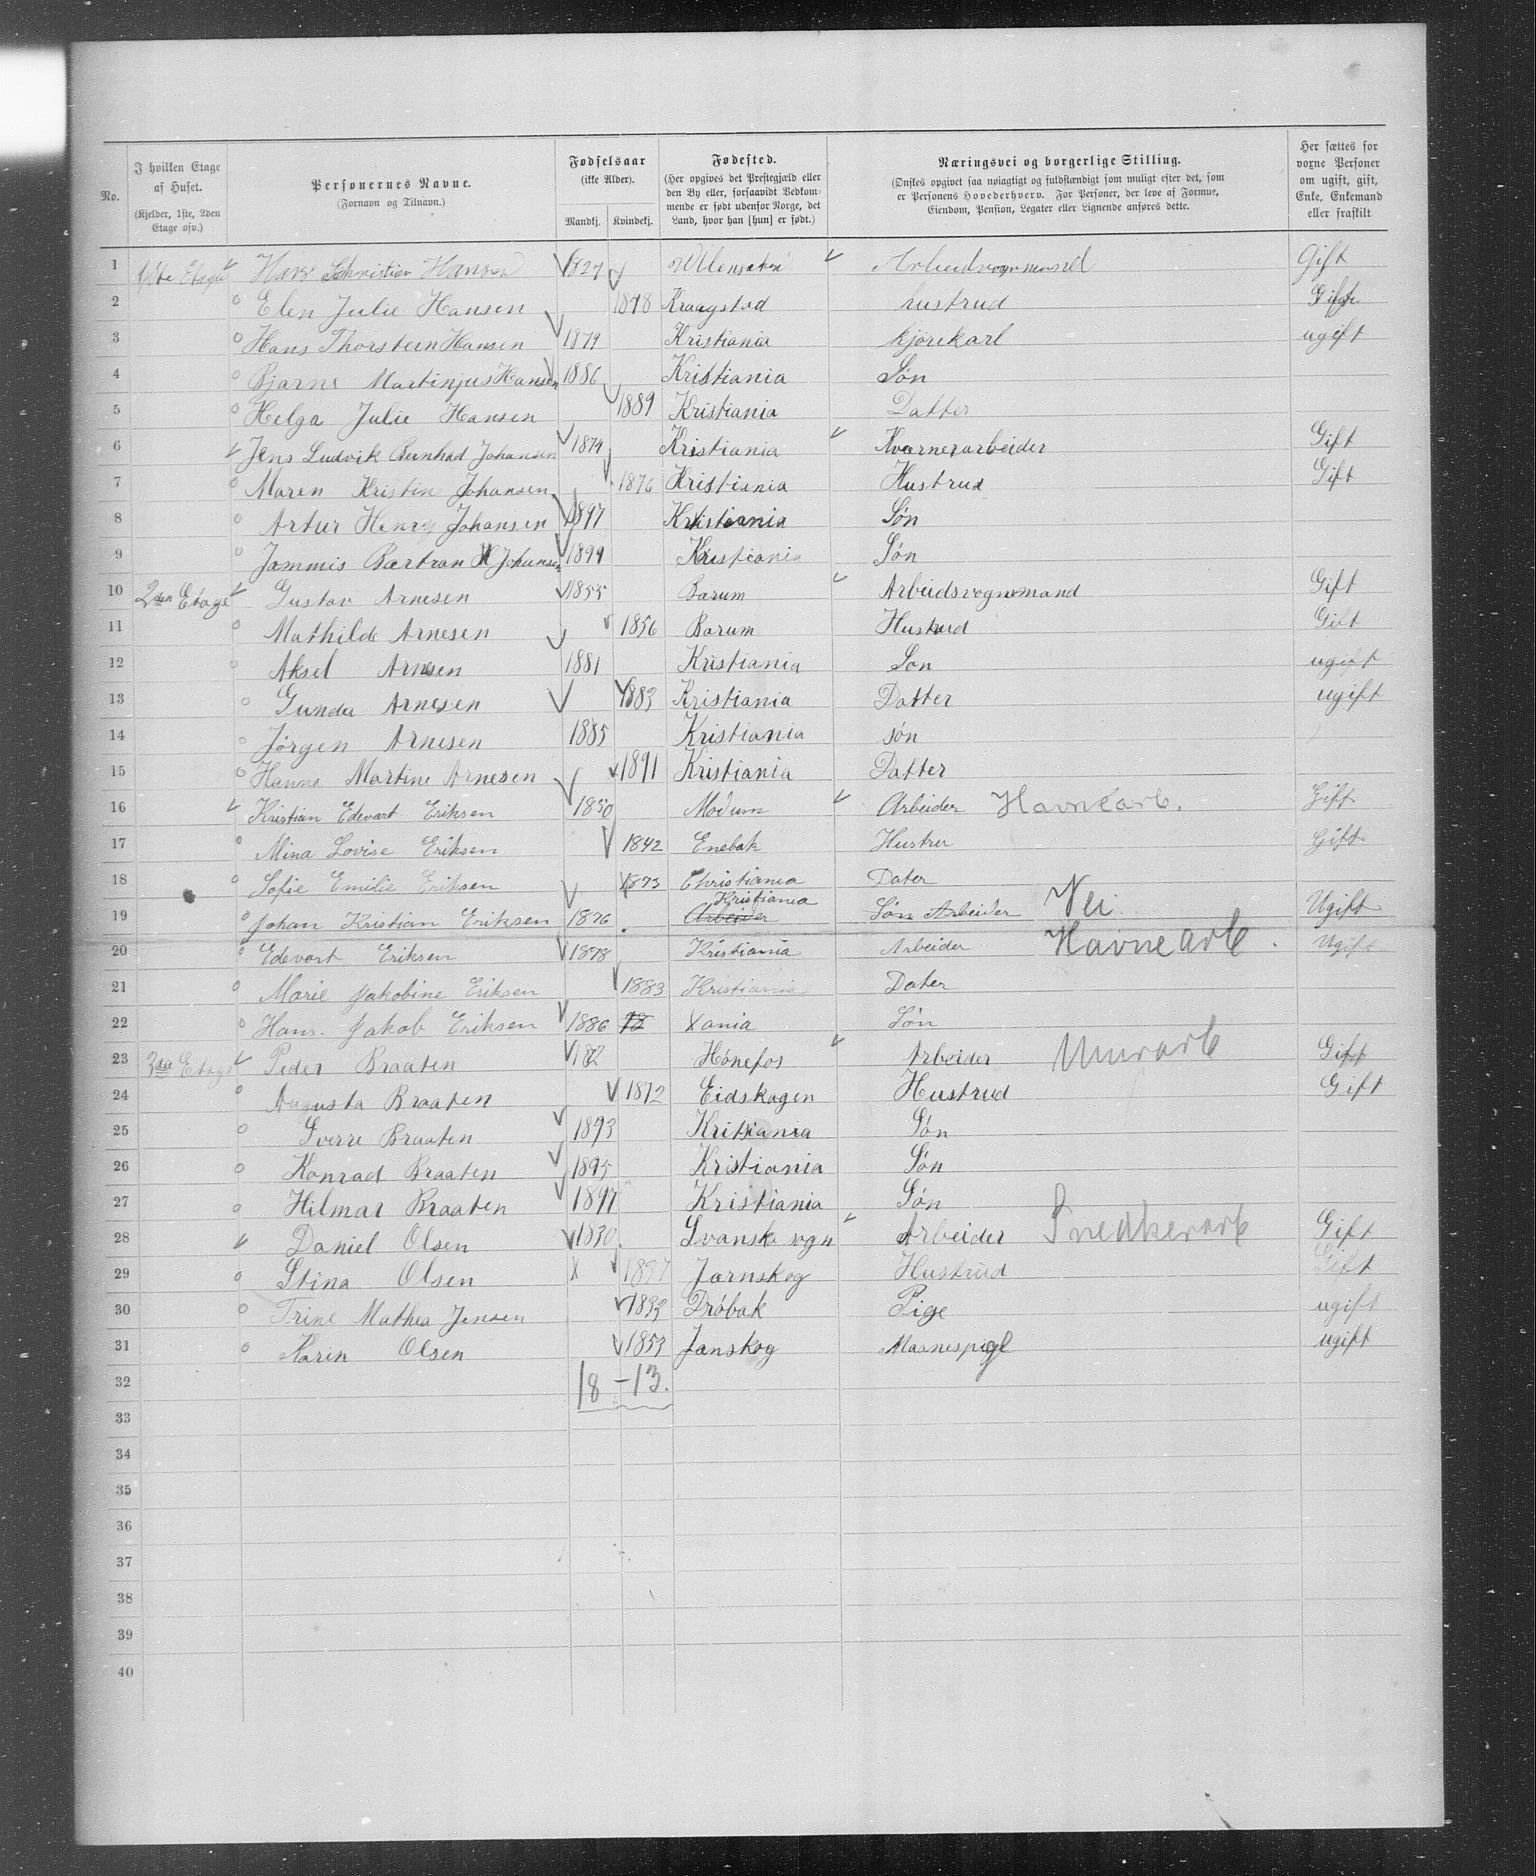 No.
I hvilken Etage af Huset. (Kjelder, 1ste, 2den Etage osv.)
Personernes Navne. (Fornavn og Tilnavn.)
Fødselsaar (ikke Alder). Mandkj. Kvindekj.
Fødested. (Her opgives det Prestegjæld eller den By eller, forsaavidt Vedkommende er født udenfor Norge, det Land, hvor han [hun] er født.)
Næringsvei og borgerlige Stilling. (Ønskes opgivet saa nøiagtigt og fuldstændigt som muligt efter det, som er Personens Hovederhverv. For Personer, der leve af Formue, Eiendom, Pension, Legater eller Lignende anføres dette.
Her sættes for voxne Personer om ugift, gift, Enke, Enkemand eller fraskilt
1 Etage Christian Hansen 1827 Arbeidvognmand Gift
2 Elen Julie Hansen Kraagstad hustrud Gift
3 Hans Thorsteen Hansen 1879 Kristiania kjørekarl ugift
4 Bjarne Martinjus Hansen 1886 Kristiania Søn
5 Helga Julie Hansen 1889 Kristiania Datter
6 Jens Ludvik Bernhad Johansen 1874 Kristiania Kværnerarbeider Gift
7 Maren Kristin Johansen 1876 Kristiania Hustrud Gift
8 Artur Henry Johansen 1897 Kristiania Søn
9 Jammis Bartran H Johansen 1899 Kristiania Søn
10 2den Etage Gustav Arnesen 1855 Barum Arbeidsvognmand Gift
11 Mathilde Arnesen 1856 Barum Hustrud Gift
12 Aksel Arnesen 1881 Kristiania Son ugift
13 Gunda Arnesen 1883 Kristiania Datter ugift
14 Jørgen Arnesen 1885 Kristiania søn
15 Hanna Martine Arnesen 1891 Kristiania Datter
16 Kristian Edevart Eriksen 1850 Modum Arbeider Havnearb. Gift
17 Mina Lovise Eriksen 1842 Enebak Hustru Gift
18 Sofie Emilie Eriksen 1873 Christiania Dater
19 Johan Kristian Eriksen 1876 Arbeider Kristiania Søn Arbeider Vei Ugift
20 Edevart Eriksen 1878 Kristiania Arbeider Havnearb. Ugift
21 Marie Jakobine Eriksen 1883 Kristiania Dater
22 Hans. Jakob Eriksen 1886 18 Xania Søn
23 3die Etage Peder Braaten Hönefos Arbeider Murarb Gift
24 Augusta Braaten 1872 Eidskogen Hustrud Gift
25 Sverre Braaten 1893 Kristiania Søn
26 Konrad Braaten 1895 Kristiania Søn
27 Hilmar Braaten 1897 Kristiania Søn
28 Daniel Olsen 1830 Svanskovgn Arbeider Snedkerarb Gift
29 Stina Olsen X Jarnskog Hustrud Gift
30 Trine Mathea Jensen 1833 Dröbak Pige ugift
31 Karin Olsen 1853 Janskog ugift
32 18 - 13.
33
34
35
36
37
38
39
40